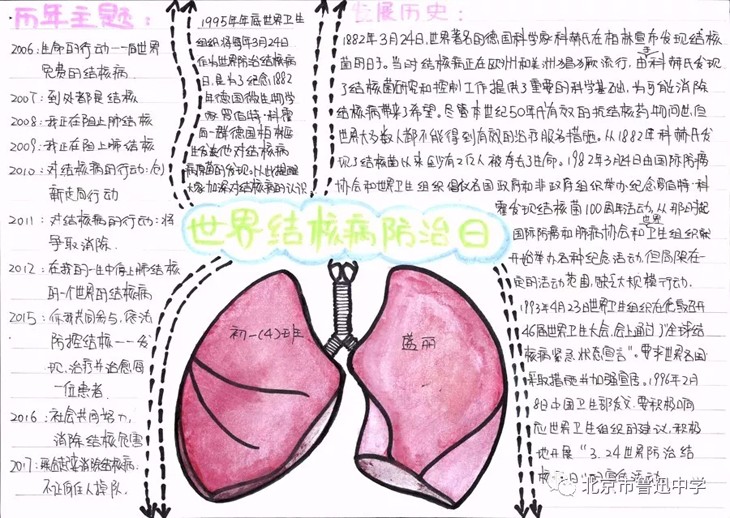 历年主题:
2006:生命的行动——一面世界
免费的结核病
2007:到处都是结核
2008:我正在阻止结核
2009:我正在阻止肺结核
2010:对结核病的行动:创
新走向行动
2011:对结核病的行动:将
争取消除.
2012:在我的一生中停止肺结核
的一个世界的结核病
2015:你我共同参与,依法
防控结核——发
现、治疗并治愈每
一位患者.
2016:社会共同努力,
消除结核危害
2017:
不让何任人掉队.
1995年年底世界卫生
组织将每年3月24日
作为世界防治结核病
日,是为了纪念1882
年德国微生物学
家罗伯特·科霍
向一群德国柏林医
生发表他对结核病
病原菌的发现,以此提醒
大家加深对结核病的认识
发展历史:
1882年3月24日,世界著名的德国科学家科赫氏在柏林宣布发现结核
菌的日子。当时结核病正在欧洲和美洲猖獗流行,由科赫氏发现
了结核菌研究和控制工作提供了重要的科学基础,为可能消除
结核病带来了希望。尽管本世纪50年代有效的抗结核药物问世,但
世界大多数人都不能得到有效的治疗服务措施。从1882年科赫氏发
现了结核菌以来,至少有2亿人被夺去了生命。1982年3月24日由国际防痨
协会和世界卫生组织倡议各国政府和非政府组织举办纪念罗伯特·科
霍发现结核菌100周年活动,从那时起
国际防痨和肺病协会和世界卫生组织就
开始举办各种纪念活动,但局限在一
定的活动范围,缺乏大规模行动.
1993年4月23日世界卫生组织在伦敦召开
46届世界卫生大会,会上通过了“全球结
核病紧急状态宣言”。要求世界各国
采取措施并加强宣传。1996年2月
8日中国卫生部发文,要积极响
应世界卫生组织的建议,积极
地开展“3.24世界防治结
核病日”的宣传活动.
世界结核病防治日
初一(4)班
盛丽
北京市鲁迅中学